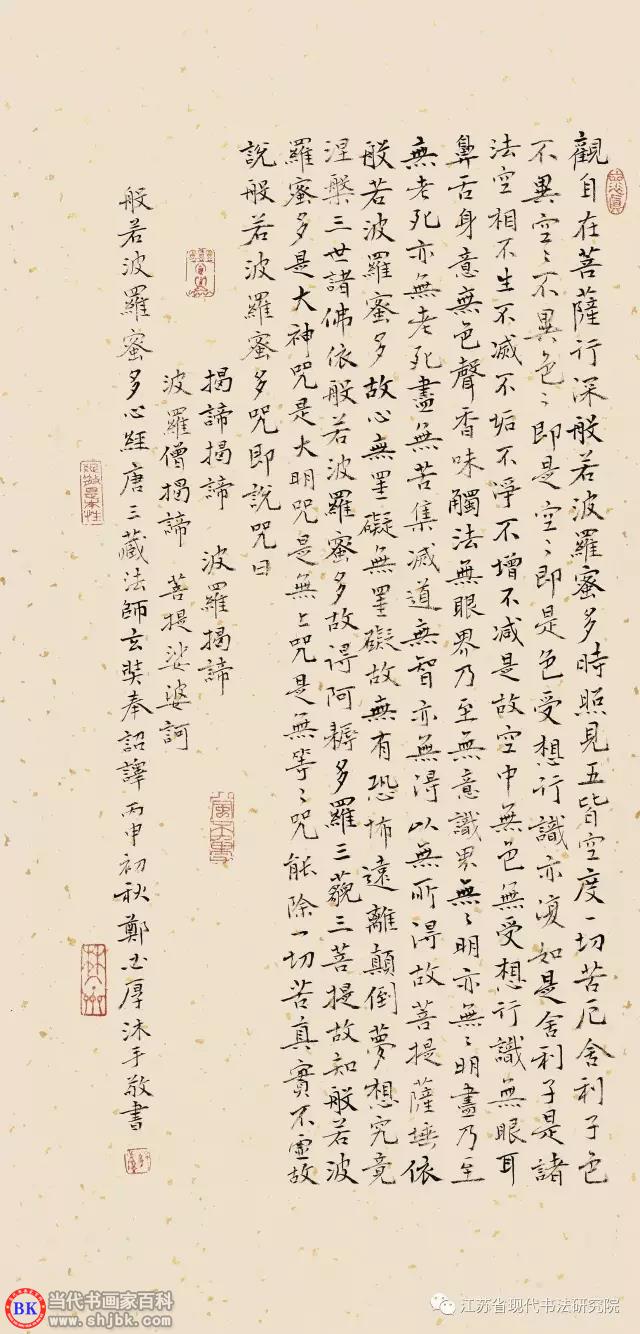 觀自在菩薩行深般若波羅蜜多時照見五皆空度一切苦厄舍利子色
不異空〻不異色〻即是空〻即是色受想行識亦復如是舍利子是諸
法空相不生不滅不垢不淨不增不減是故空中無色無受想行識無眼耳
鼻舌身意無色聲香味觸法無眼界乃至無意識界無〻明亦無〻明盡乃至
無老死亦無老死盡無苦集滅道無智亦無得以無所得故菩提薩埵依
般若波羅蜜多故心無罣礙無罣礙故無有恐怖遠離顛倒夢想究竟
涅槃三世諸佛依般若波羅蜜多故得阿耨多羅三藐三菩提故知般若波
羅蜜多是大神咒是大明咒是無上咒是無等〻咒能除一切苦真實不虛故
說般若波羅蜜多咒即說咒曰
揭諦揭諦 波羅揭諦
波羅僧揭諦 菩提娑婆訶
般若波羅蜜多心經唐三藏法師玄奘奉詔譯丙申初秋鄭 厚沐手敬書
BK
当代书画家百科
www.shjbk.com
江苏省现代书法研究院